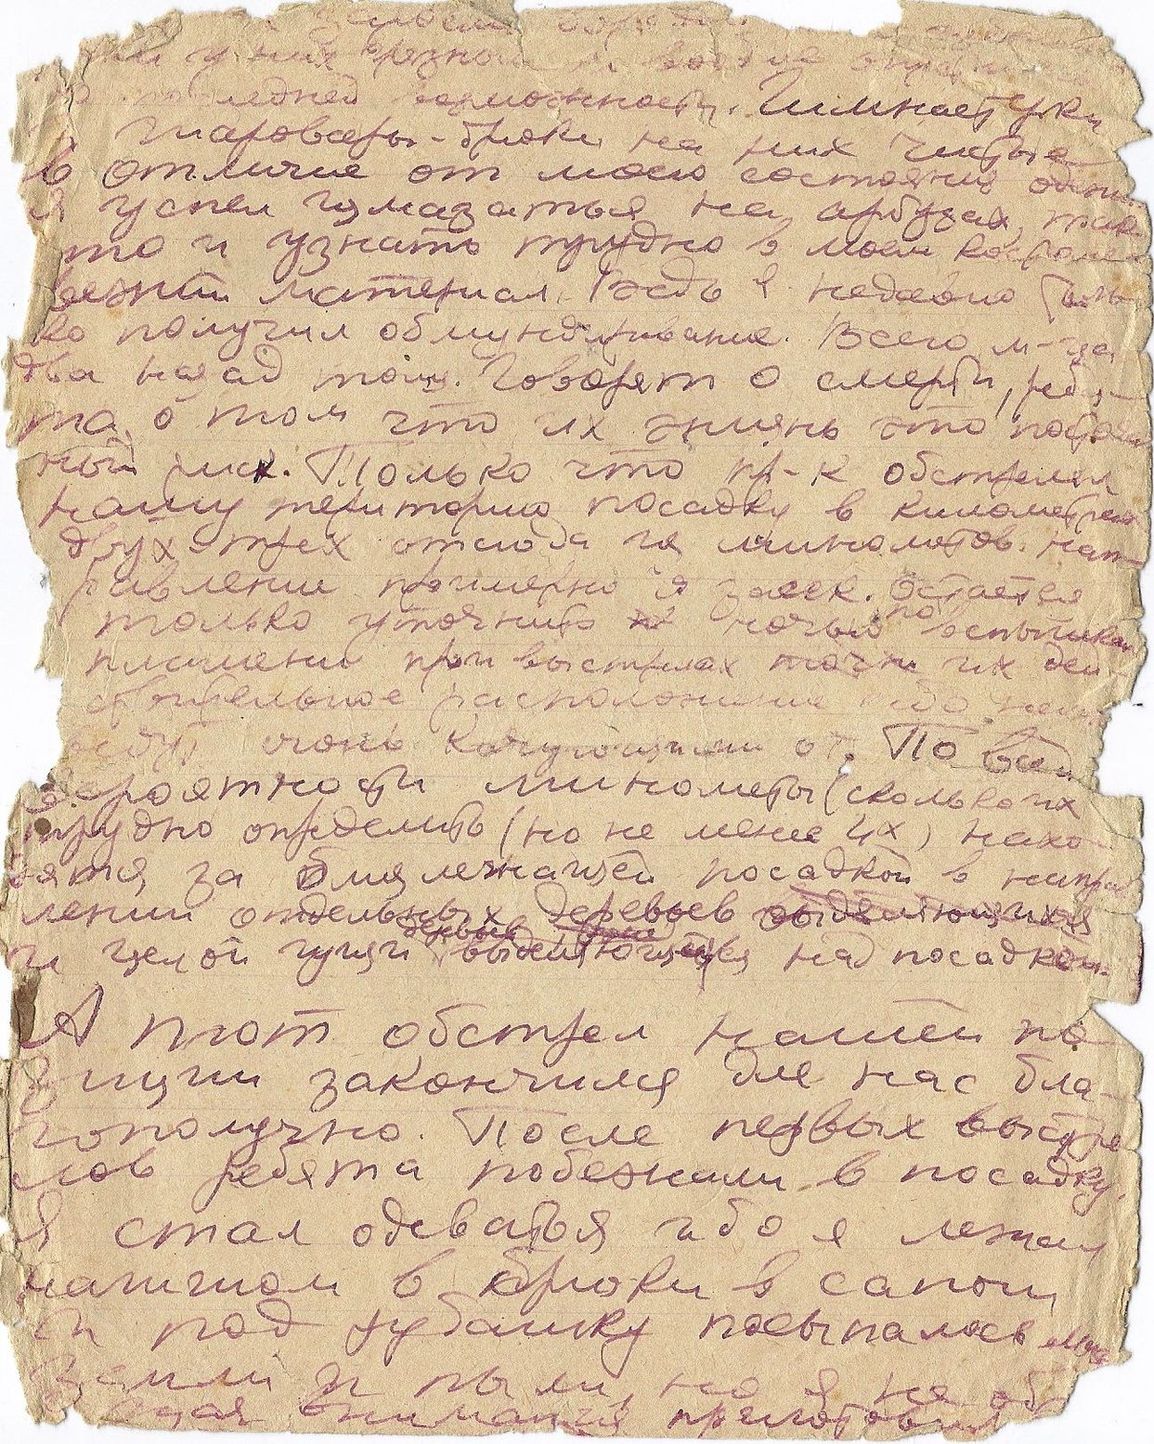 у них
последней возможности. Гимнастерки
шаровары-брюки на них чистые
в отличие от моего состояния одежи.
я успел измазаться на арбузах, так
что и узнать трудно в моем костюме
свежий материал. Ведь я недавно толь-
ко получил обмундирование. Всего м-ца
два назад тому. Говорят о смерти, ребя-
та, о том что их жизнь это
ный риск. Только что пр-к обстрелял
нашу территорию посадку в километрах
двух-трех отсюда из минометов. Нап-
равление примерно я засек. Остается
только уточнить ночью по вспышкам
пламени при выстрелах точки их дей-
ствительное расположение
очень. По всей
вероятности минометы (сколько их
трудно определить (но не менее 4х) нахо-
дятся за близлежащей посадкой в направ-
лении отдельных деревьев выделяющихся
и целой гущи деревьев выделяющейся над посадкой.
А тют обстрел нашей по-
зиции закончился для нас бла-
гополучно. После первых выстре-
лов ребята побежали в посадку.
Я стал одеваться ибо я лежал
нагишом в брюки в сапоги
и под рубашку посыпалось
земли и пыли, но я не об-
ращая внимания приготовил